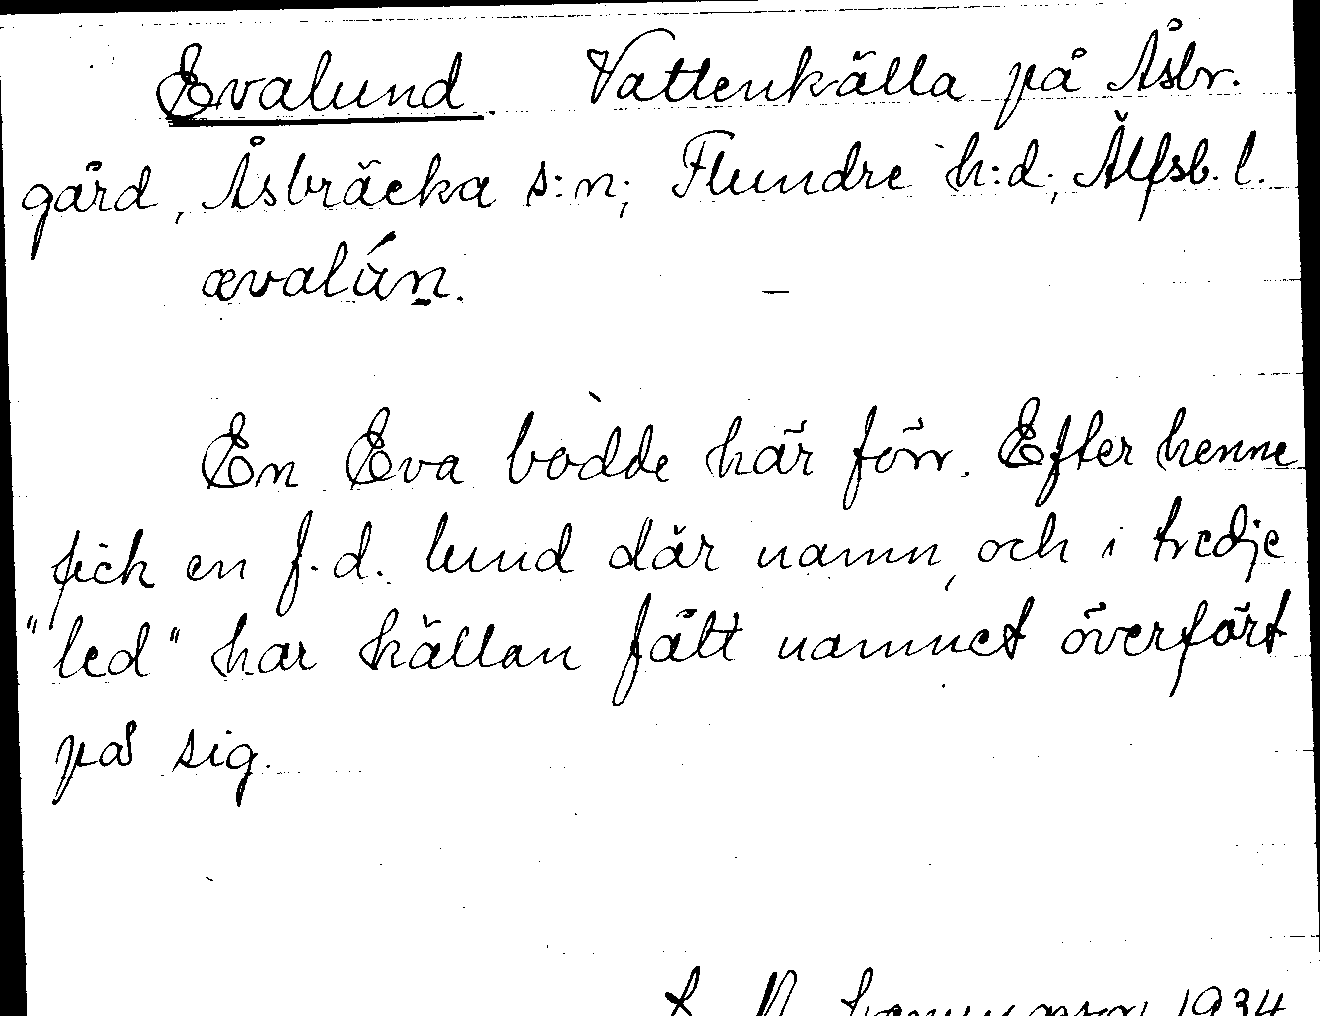 Evalund. Vattenkälla på Åsbr.
gård, Åsbräcka s:n; Flundre h:d; Älfsb. l.
ævalún. –
En Eva bodde här förr. Efter henne
fick en f.d. lund där namn, och i tredje
"led" har källan fått namnet överfört
på sig.
1934